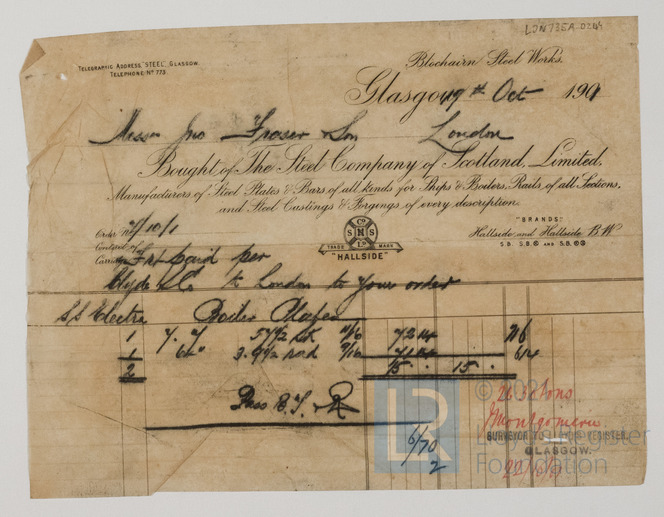 LDN735A-0264
TELEGRAPHIC ADDRESS, "STEEL", GLASGOW.
TELEPHONE Nº 773.
Blochairn Steel Works.
Glasgow, 19th Oct 1901
Messrs Jno Fraser & Son London
Bought of The Steel Company of Scotland, Limited.
Manufacturers of Steel Plates & Bars of all kinds for Ships & Boilers, Rails of all Sections,
and Steel Castings & Forgings of every description.
Order Nº 4/10/1
Contract of
Carriage Frt paid per
Co
S H S
LD
TRADE MARK
"HALLSIDE"
"BRANDS"
Hallside and Hallside B.W
S.B. S.B.
Clyde S Co to London to your order
S/S Electra Boiler Plates
1 11/16 7 2 14
1 9/16 7 1 14 614
2 15 . 15 .
Pass B.T.
© 20
LR
Lloyd's Register
Foundation
26 3 0 tons
J Montgomerie
SURVEYOR TO LLOYD'S REGISTER,
GLASGOW.
6/70
2